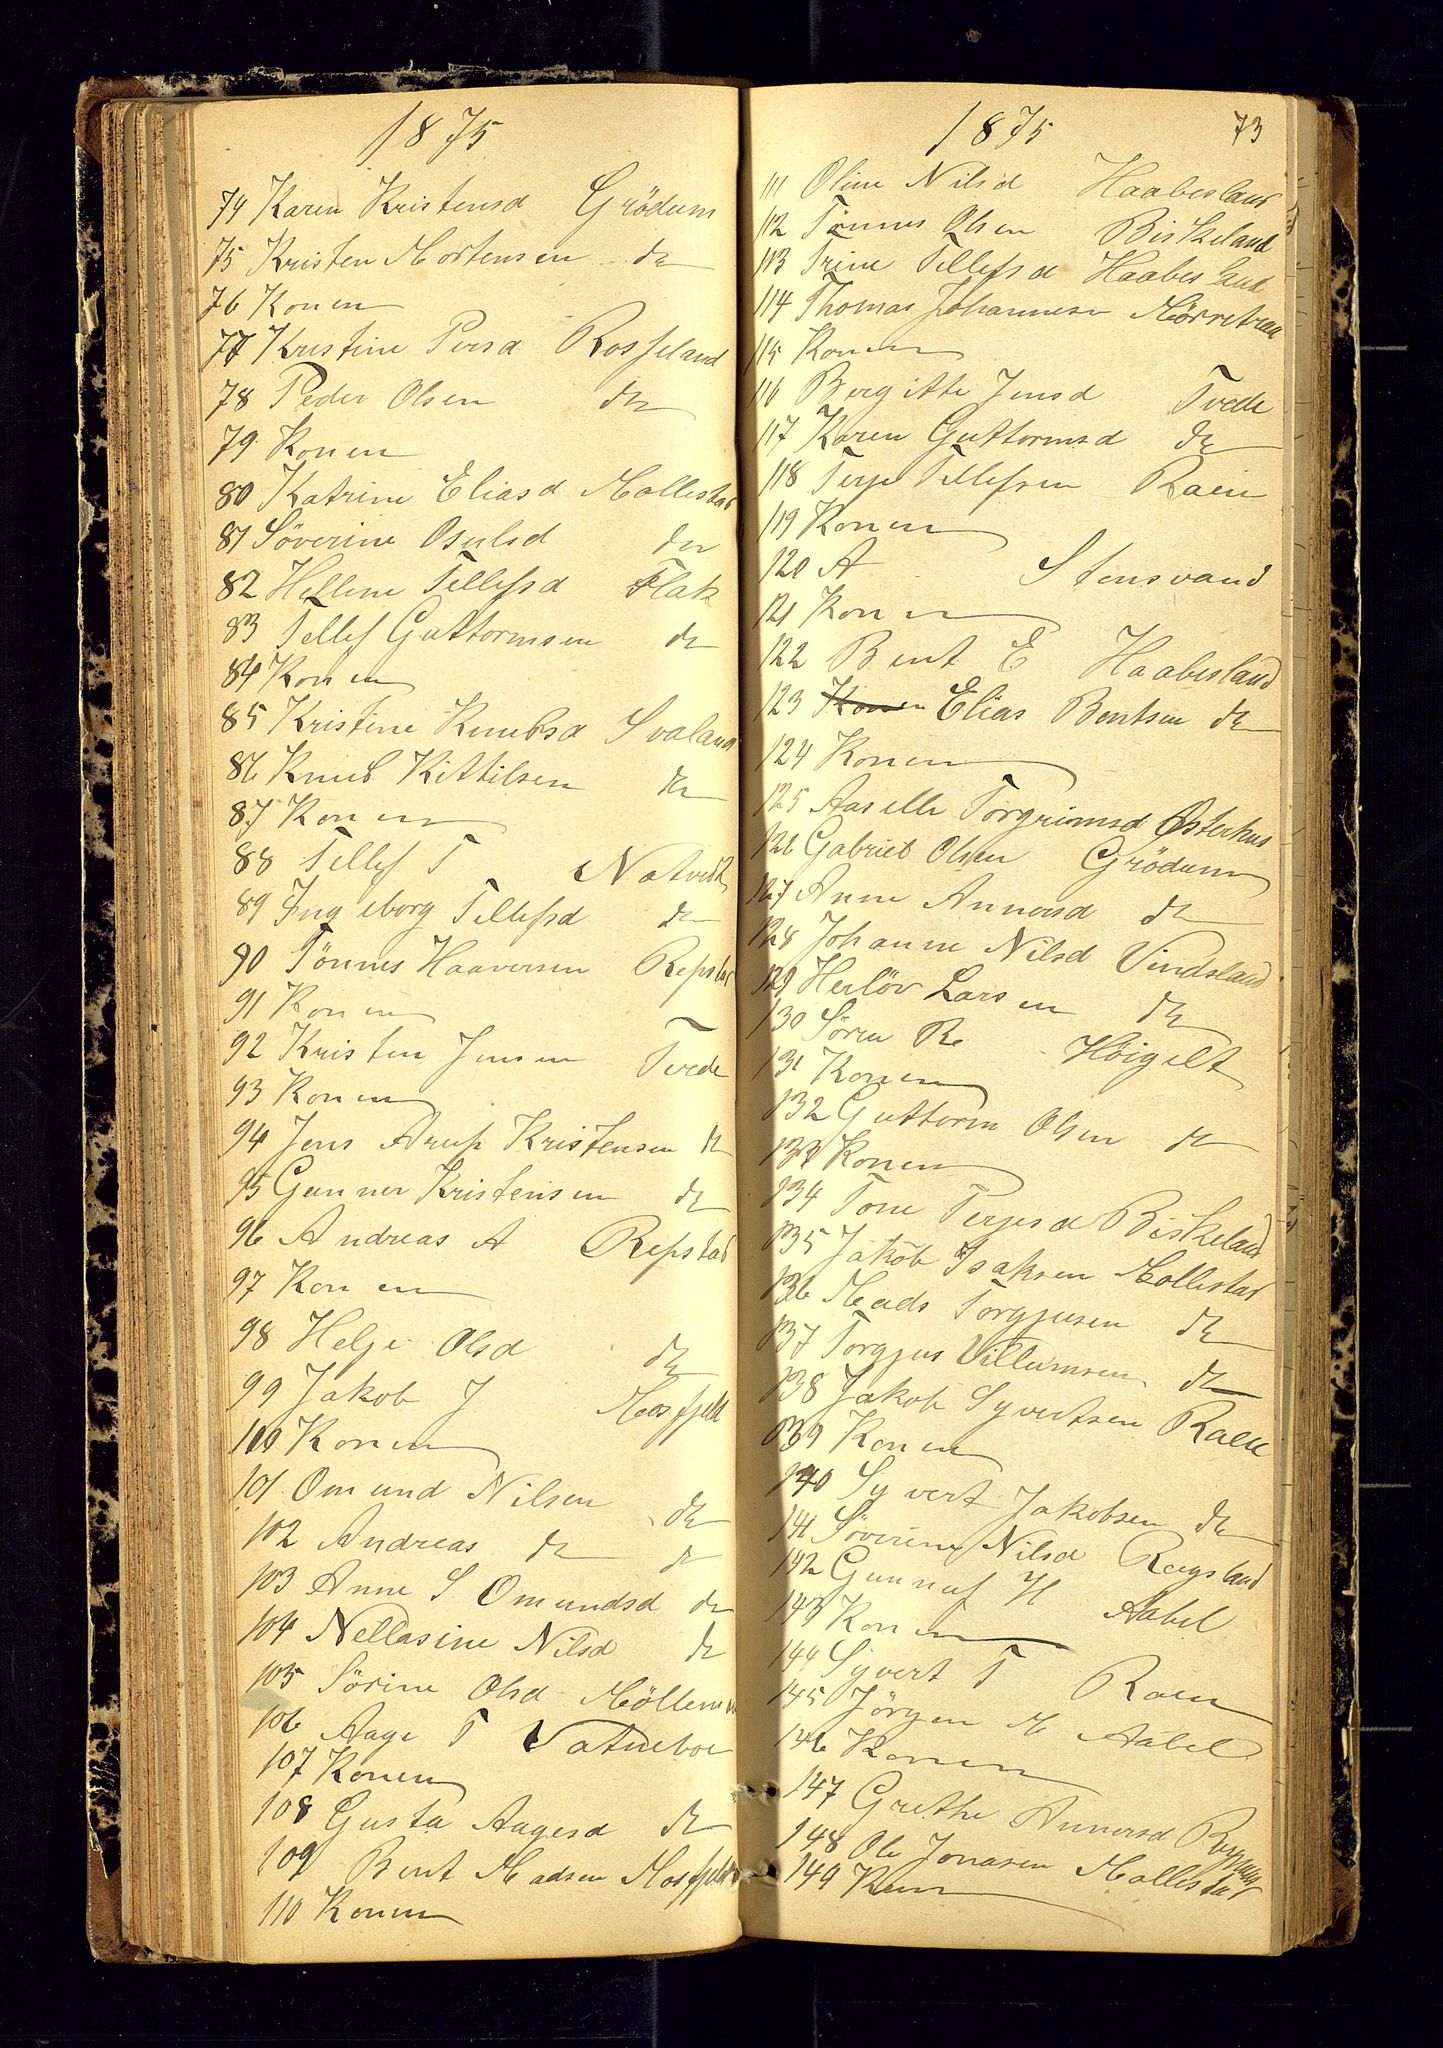 1875
74 Karen Kristensd Grödum
75 Kristen Mortensen do
76 Konen
77 Kristine Persd Rosseland
78 Peder Olsen do
79 Konen
80 Katrine Eliasd Mollestad
81 Söverine Osulsd do
82 Hellene Tellefsd Flak
83 Tellef Guttormsen do
84 Konen
85 Kristine Knudsd Svaland
86 Knud Kittilsen do
87 Konen
88 Tellef T Natvedt
89 Ingeborg Tellefsd do
90 Tönnes Haaversen Repstad
91 Konen
92 Kristen Jensen Tvede
93 Konen
94 Jens Arup Kristensen do
95 Gunner Kristensen do
96 Andreas A Repstad
97 Konen
98 Helje Olsd do
99 Jakob J Mosfjeld
100 Konen
101 Omund Nilsen do
102 Andreas do do
103 Anne S Omundsd do
104 Nellasine Nilsd do
105 Sörine Olsd
106 Aage T Natveboe
107 Konen
108 Gusta Aagesd do
109 Bent Madsen Mosfjeld
110 Konen
1875 73
111 Oline Nilsd Haabesland
112 Tönnes Olsen Biskeland
113 Trine Tellefsd Haabesland
114 Thomas Johannesen
115 Konen
116 Bergitte Jensd Tvede
117 Karen Guttormsd do
118 Terje Tellefsen Raen
119 Konen
120 A Stensvand
121 Konen
122 Bent E Haabesland
123 Konen Elias Bentsen do
124 Konen
125 Aaselle Torgrimsd Østerhus
126 Gabriel Olsen Grödum
127 Anne Annersd do
128 Johanne Nilsd Vindsland
129 Herlöv Larsen do
130 Sören R Höigilt
131 Konen
132 Guttorm Olsen do
133 Konen
134 Tone Terjesd Biskeland
135 Jakob Isaksen Mollestad
136 Mads Torgjusen do
137 Torgjus Villumsen do
138 Jakob Syvertsen Raen
139 Konen
140 Syvert Jakobsen do
141 Söverine Nilsd Rugsland
142 Gunnuf H Aabel
143 Konen
144 Syvert T Raen
145 Jörgen M Aabel
146 Konen
147 Grethe Annersd
148 Ole Jonasen Mollestad
149 Konen